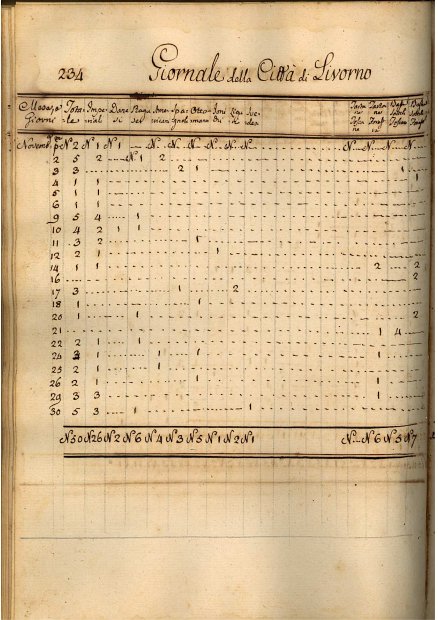 234 Giornale della Città di Livorno
Mese, e Giorni Tota-le Impe-riali Dane-si Ragu-sei Ame-ricani Spa-gnoli Otto-mani
Novemb. N 2 N 1 N 1 .... N .. N .. N .. N .. N .. N N .. N .. N .. N
2 5 2 N 1 2
3 3 2 1 1
4 1 1
5 1 1
6 1 1
9 5 4 1
10 4 2 1 1
11 3 2 1
12 2 1
14 1 1 2 2
16 2
17 3 1 1 2
18 1 1
20 1 1 2
21 1 4
22 2 1 1
24 3 1 1 1
25 2 1 1
26 2 1 1 1
29 3 3
30 5 3 1 1
N 50 N 26 N 2 N 6 N 4 N 3 N 5 N 1 N 2 N 1 N .. N 6 N 5 N 7